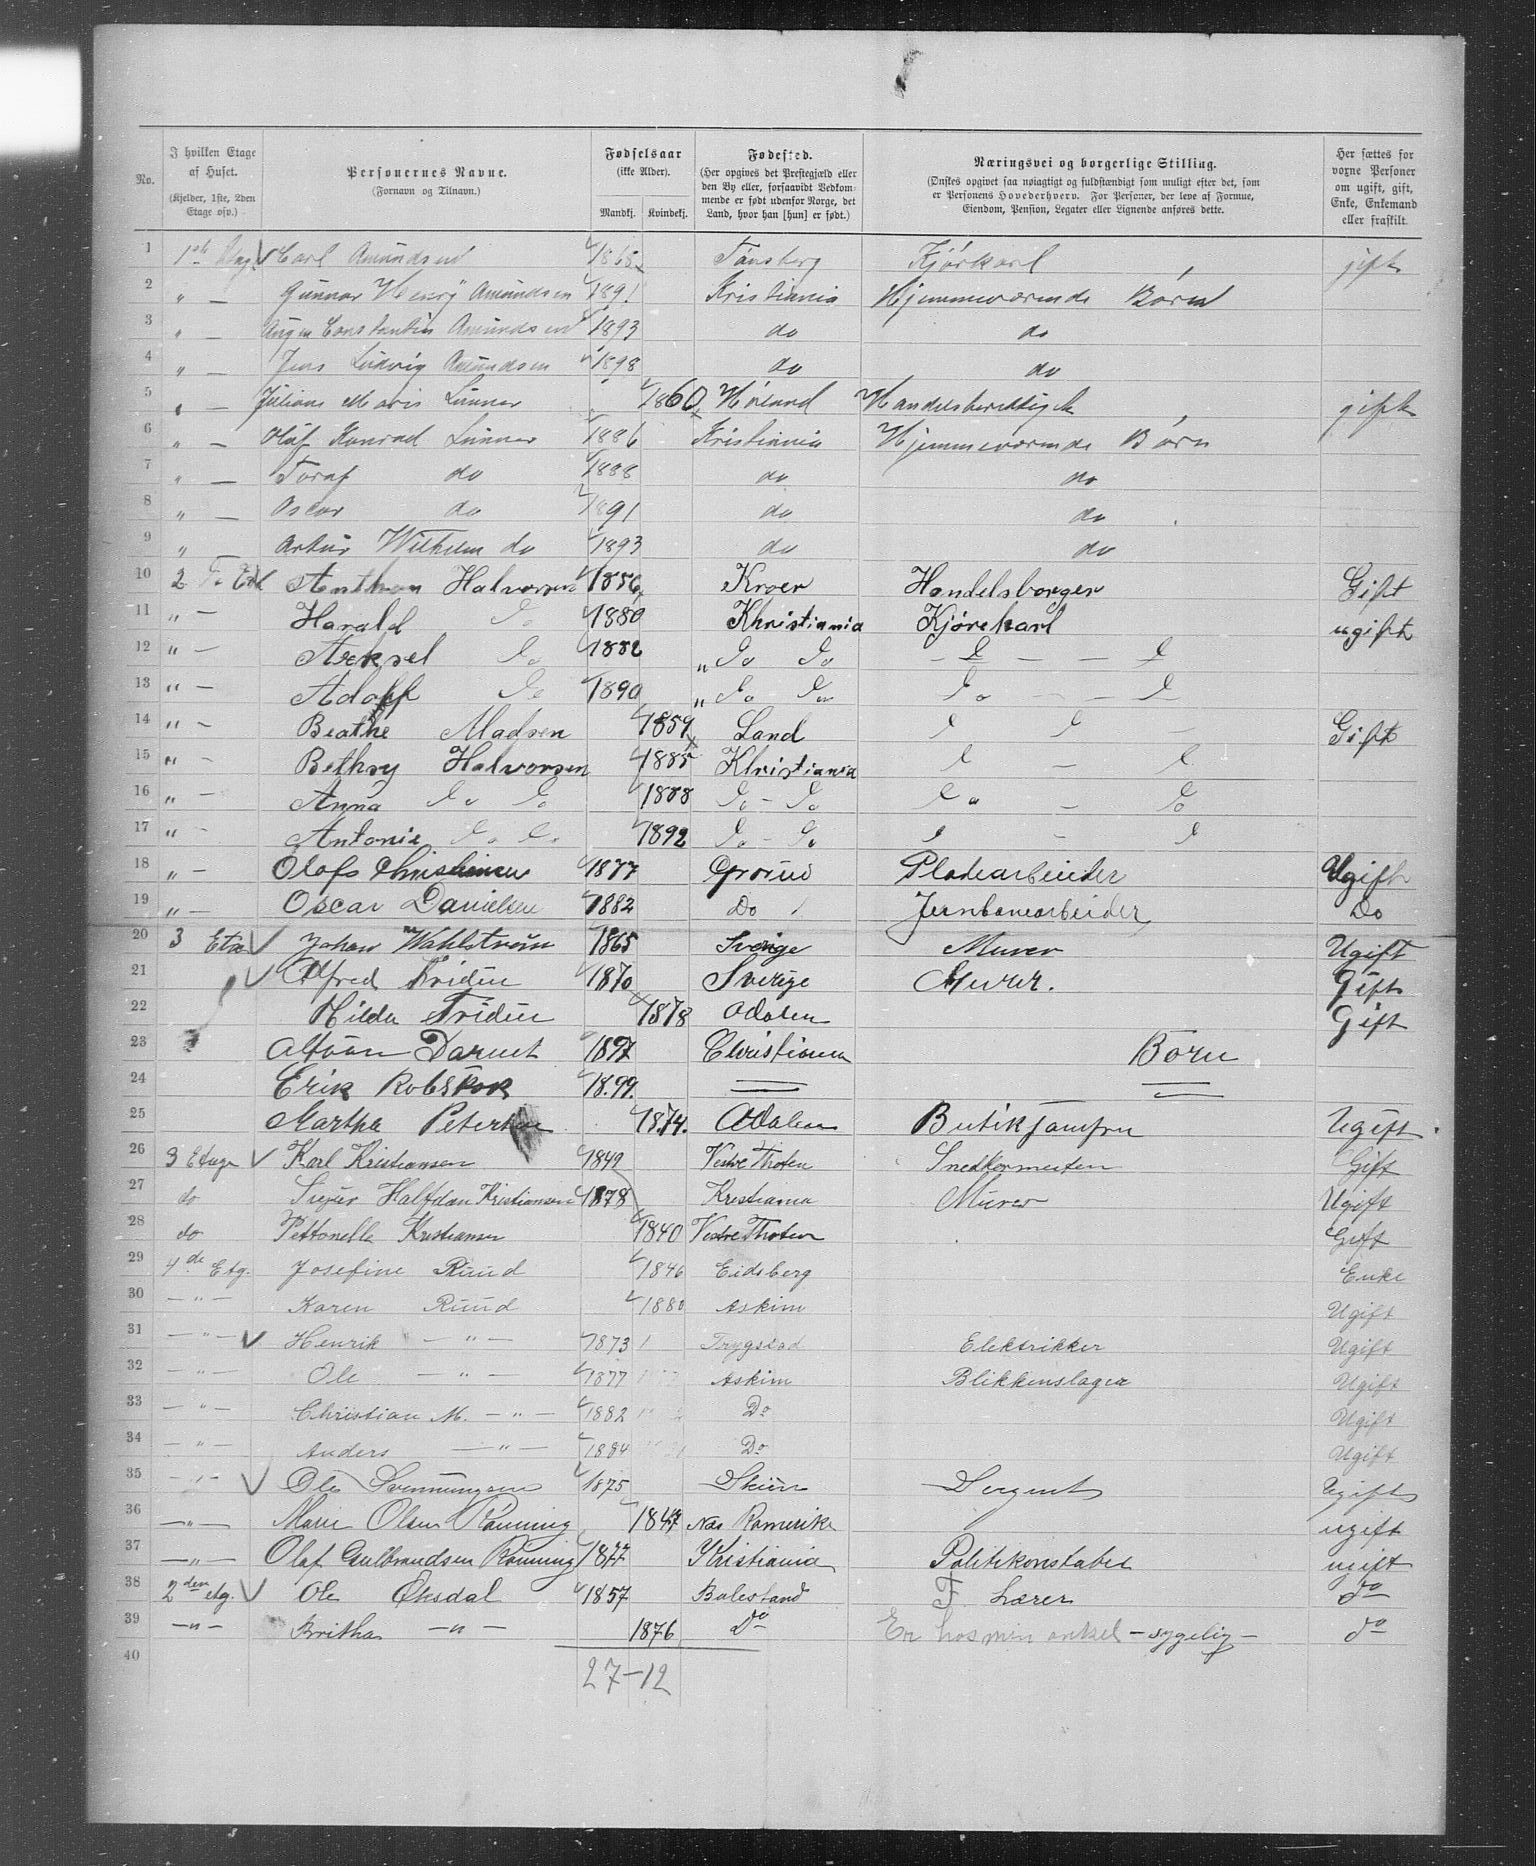 No.
I hvilken Etage af Huset. (Kjelder, 1ste, 2den Etage osv.)
Personernes Navne. (Fornavn og Tilnavn.)
Fødselsaar (ikke Alder). Mandkj. Kvindekj.
Fødested. (Her opgives det Prestegjæld eller den By eller, forsaavidt Vedkommende er født udenfor Norge, det Land, hvor han [hun] er født.)
Næringsvei og borgerlige Stilling. (Ønskes opgivet saa nøiagtigt og fuldstændigt som muligt efter det, som er Personens Hovederhverv. For Personer, der leve af Formue, Eiendom, Pension, Legater eller Lignende anføres dette.
Her sættes for vorne Personer om ugift, gift, Enke, Enkemand eller fraskilt.
1 1ste Carl Amundsen 1865 Tønsberg Kjørkarl gift
2 " — Gunnar Henry Amundsen 1891 Kristiania Hjemmeværende Børn
3 " — Constantin Amundsen 1893 do do
4 " — Jens Ludvig Amundsen 1898 do do
5 " — Juliane Marie Linner 1860 Høland Handelsberettiget gift
6 " — Olaf Konrad Linner 1886 Kristiania Hjemmeværende Børn
7 " — Toraf do 1888 do do
8 " — Oscar do 1891 do do
9 " Artur Wilhelm do 1893 do do
10 2 Anthon Halvorsen 1856 Kroer Handelsborger Gift
11 " — Harald Do 1880 Khristiania Kjørekarl ugift
12 " — Aeksel Do 1882 " Do Do
13 " — Adolf Do 1890 " Do Do Do
14 " — Beathe Madsen 1859 Land Gift
15 " — Bethsy Halvorsen 1885 Khristiania
16 " — Anna Do Do 1888 Do — Do Do — Do
17 " — Antonie Do Do 1892 Do — Do
18 " — Olofs Christiansen 1877 Grorud Pladearbeider Ugift
19 " — Oscar Danielsen 1882 Do Jernbanearbeider Do
20 3 Eta Johan Wahlstrøm 1865 Sverige Murer Ugift
21 Alfred Fridin 1870 Sverige Murer. Gift
22 Hilda Fridin 1878 Adalen Gift
23 Daruet 1897 Christiania Børn
24 Erik Robskok 1899.
25 Martha Petersen 1874. Adalen Butikjomfru Ugift.
26 3 Etage Karl Kristiansen 1849 Vestre Thoten Snedkermester Gift
27 do Sigur Halfdan Kristiansen 1878 Krestiania Murer Ugift
28 do Pettonelle Kristiansen 1840 Vestre Thoten Gift
29 4de Etg. Josefine Ruud 1846 Eidsberg Enke
30 — " — Karen Ruud 1880 Askim Ugift
31 — " — Henrik — " — 1873 Trygstad Elektrikker Ugift
32 — " — Ole — " — 1877 Askim Blikkenslager Ugift
33 — " — Christian M. — " — 1882 Do Ugift
34 — " — Anders — " — 1884 Do Ugift
35 — " — Ole Svennungsen 1875 Skien Sergent Ugift
36 — " — Marie Olsen Rønning 1847 Næs Romerike ugift
37 — " — Olaf Gulbrandsen Rønning 1877 Kristiania Politikonstabel ugift
38 2den etg. Ole Øksdal 1857 Balestand F. Lærer do
39 — " — Britha — " — 1876 Do Er hos min onkel — sygelig — do
40
27—12